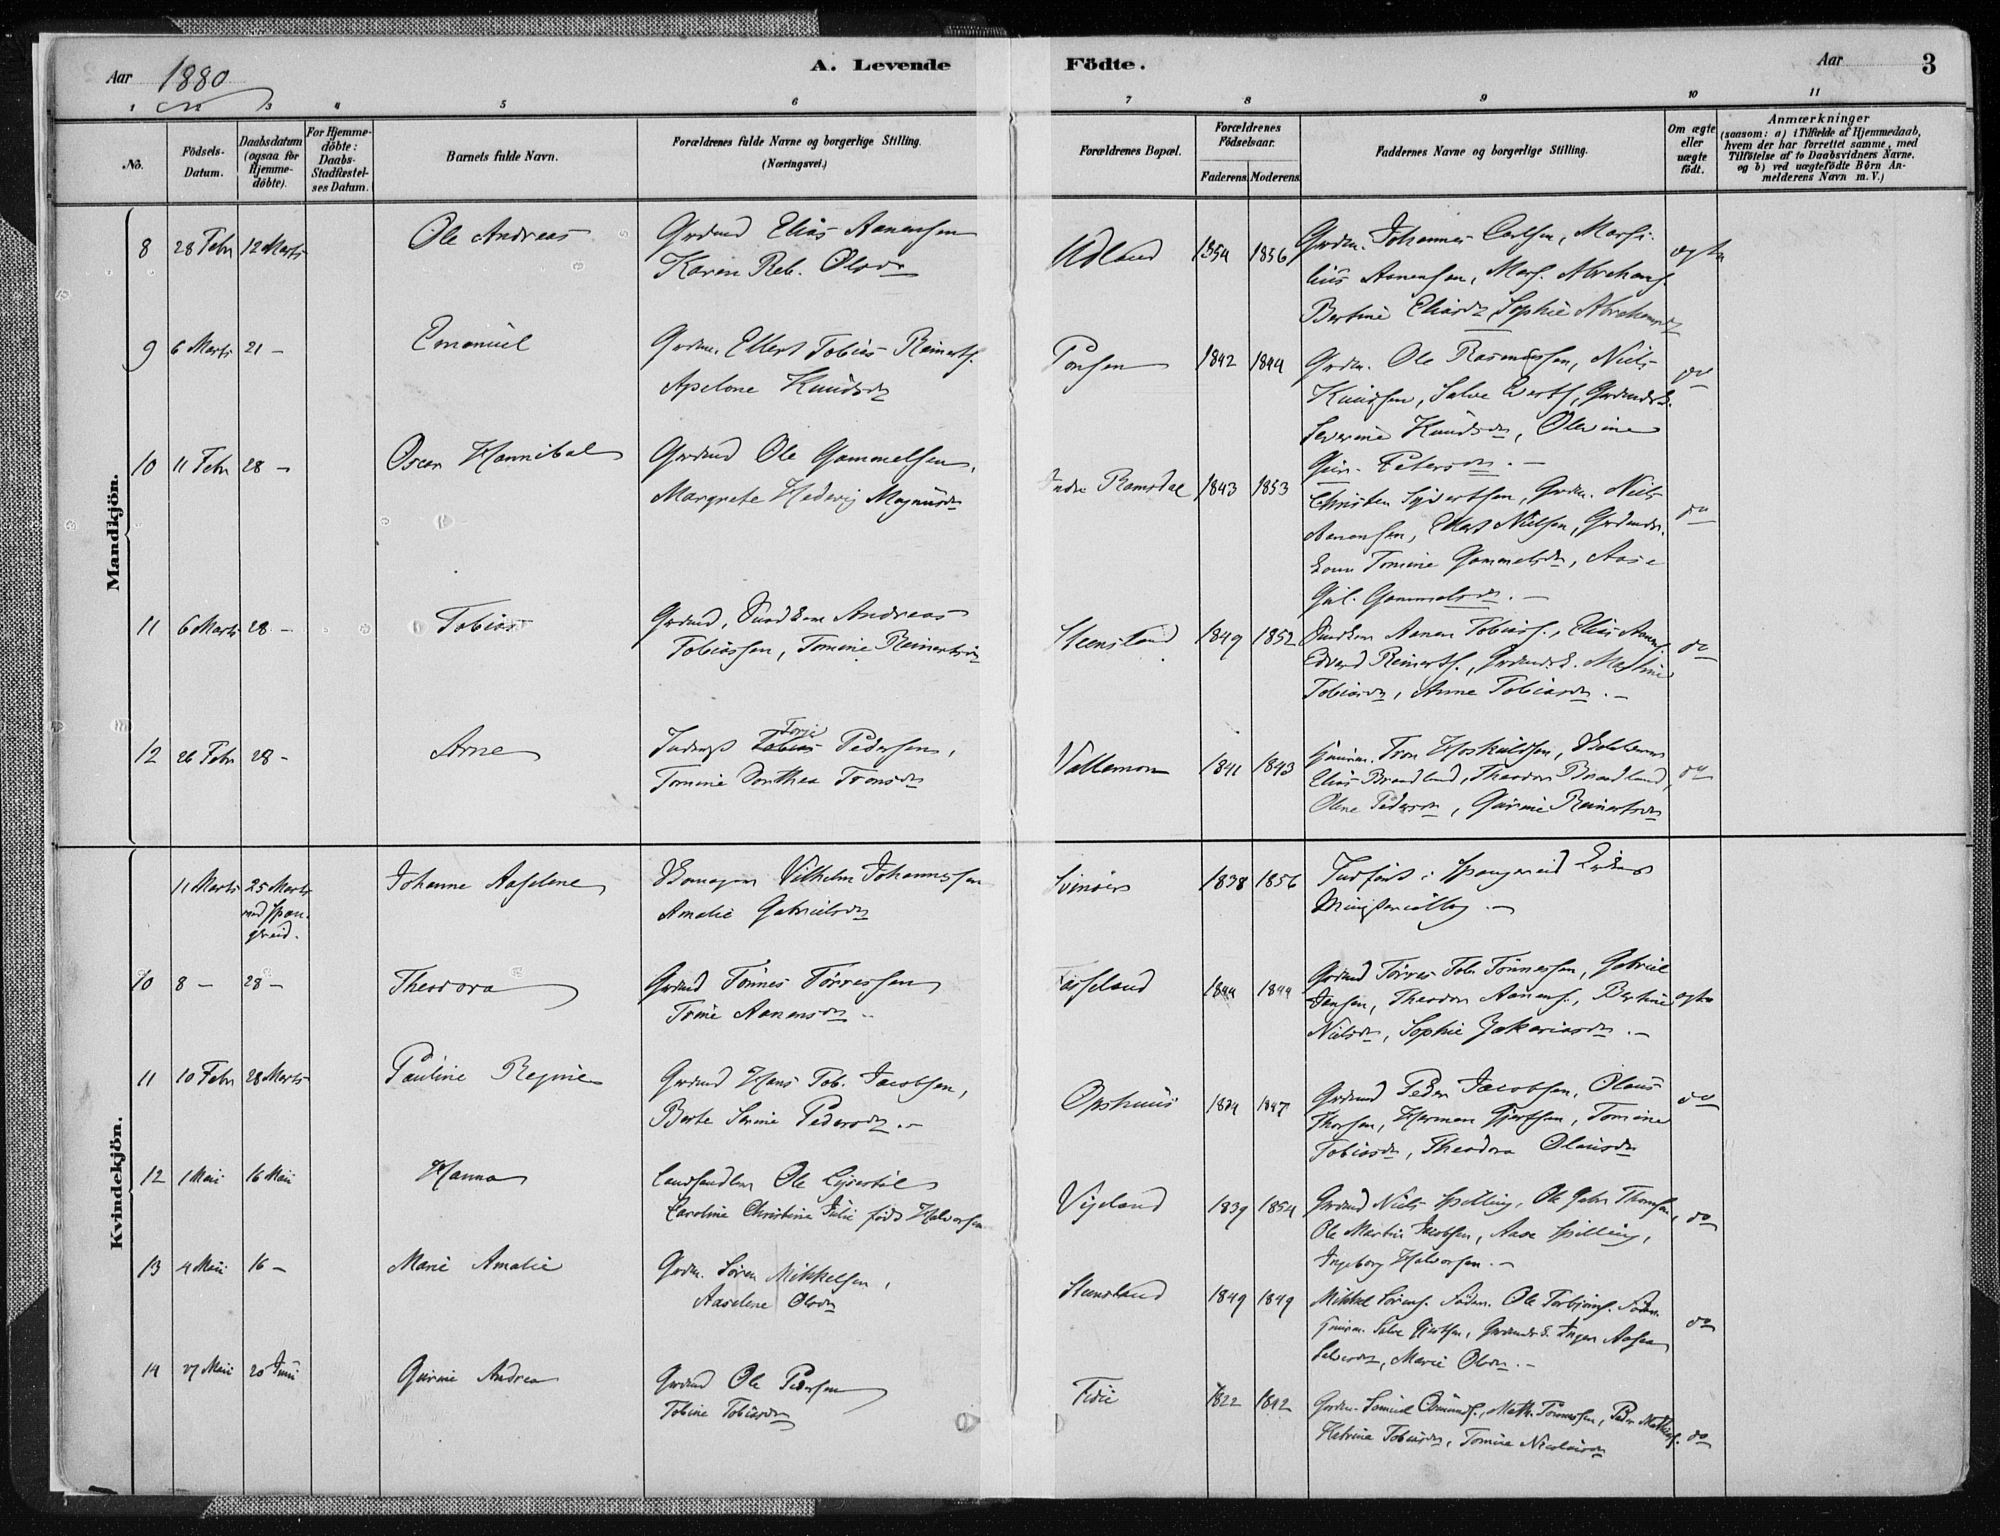 Aar 1880
A. Levende Födte.
Aar 3
1 2 3 4 5 6 7 8 9 10 11
No.
Födsels-Datum.
Daabsdatum (ogsaa for Hjemme-döbte).
For Hjemme-döbte: Daabs-Stadfæstel-ses Datum.
Barnets fulde Navn.
Forældrenes fulde Navne og borgerlige Stilling.
(Næringsvei.)
Forældrenes Bopæl.
Forældrenes Födselsaar.
Faderens Moderens
Faddernes Navne og borgerlige Stilling.
Om ægte eller uægte födt.
Anmærkninger
(saasom: a) i Tilfælde af Hjemmedaab, hvem der har forrettet samme, med Tilföielse af to Daabsvidners Navne, og b) ved uægtefödte Börn An-melderens Navn m. V.)
Mandkjön.
8 28 Febr 12 Marts Ole Andreas Grdmd Elias Aanensen
Karen Reb. Olsdr
Udland 1854 1856 Grdm. Johannes Carlsen, Marsi-
lius Aanensen, Mars. Abrahams.
Bertine Eliasdr, Sophie Abrahamsdr
ægte
9 6 Marts 21 - Emanuel Grdm. Ellert Tobias Reinerts.
Apelone Knudsdr
1842 1844 Grdm. Ole Rasmussen, Niels
Knudsen, Salve
Severine Knudsdr, Olevine
Gur. Petersdr. -
do
10 11 Febr 28 - Oscar Hannibal Grdmd Ole Gammelsen,
Margrete Hedevig Magnusdr
Indre Ramsdal 1843 1853 Christen Syvertsen, Grdm. Niels
Aanensen, Ellert Nielsen,
Tomine Gammelsdr, Aase
Gul. Gammelsdr. -
do
11 6 Marts 28 - Tobias Grdmd, Andreas
Tobiassen, Tomine Reinertsdr
Steensland 1849 1852 Aanen Tobias., Elias Aanens.
Edvard Reinerts.,
Tobiasdr, Anne Tobiasdr. -
do
12 26 Febr 28 - Arne Torje Pedersen,
Tomine Dorthea Tronsdr
Vallemoen 1841 1843 Tron Hoskuldsen,
Elias Brandland, Theodor Brandland,
Olene Pedersdr, Gurine Reinertsdr
do
Kvindekjön.
11 Marts 25 Marts
ved Span-
gereid.
Johanne Aaselene Skomager Vilhelm Johannessen
Amalie Gabrielsdr
Svinöer 1838 1856 Indfört i Spangereid Kirkes
Ministerialbog. -
10 8 - 28 - Theodora Grdmd Tönnes Törressen
Trine Aanensdr. -
1844 1844 Grdmd Törres Tob. Tönnessen, Gabriel
Jensen, Theodor Aanens., Bertine
Nielsdr, Sophie Zakariasdr. -
ægte
11 10 Febr 28 Marts Pauline Regine Grdmd Hans Tob. Jacobsen,
Berte Serine Pedersdr. -
Opshuus 1847 Grdmd Peder Jacobsen, Olaus
Thorsen, Herman Gjertsen, Tomine
Tobiasdr, Theodora Olausdr
do
12 1 Mai 16 Mai Hanna Landhandler Ole Lyvestöl
Caroline Christine Julie født Halvorsen
Vigeland 1839 1854 Grdmd Niels Spilling, Ole Gabr. Thomsen,
Ole Martin Jacobsen, Aase Spilling,
Ingeborg Halvorsen. -
do
13 4 Mai 16 - Marie Amalie Grdm. Sören Mikkelsen,
Aaselene Olsdr
Steensland 1849 1849 Mikkel Sörens. Ole Torbjörns.
Salve Gjertsen, Inger Aasea
Salvesdr, Marie Olsdr. -
do
14 27 Mai 20 Juni Gurine Andrea Grdmd Ole Pedersen
Tobine Tobiasdr
Fidie 1822 1842 Grdm. Samuel Osmunds., Math. Tönnessen, Peder Mathias.
Katrine Tobiasdr, Tomine Nicolaisdr
do